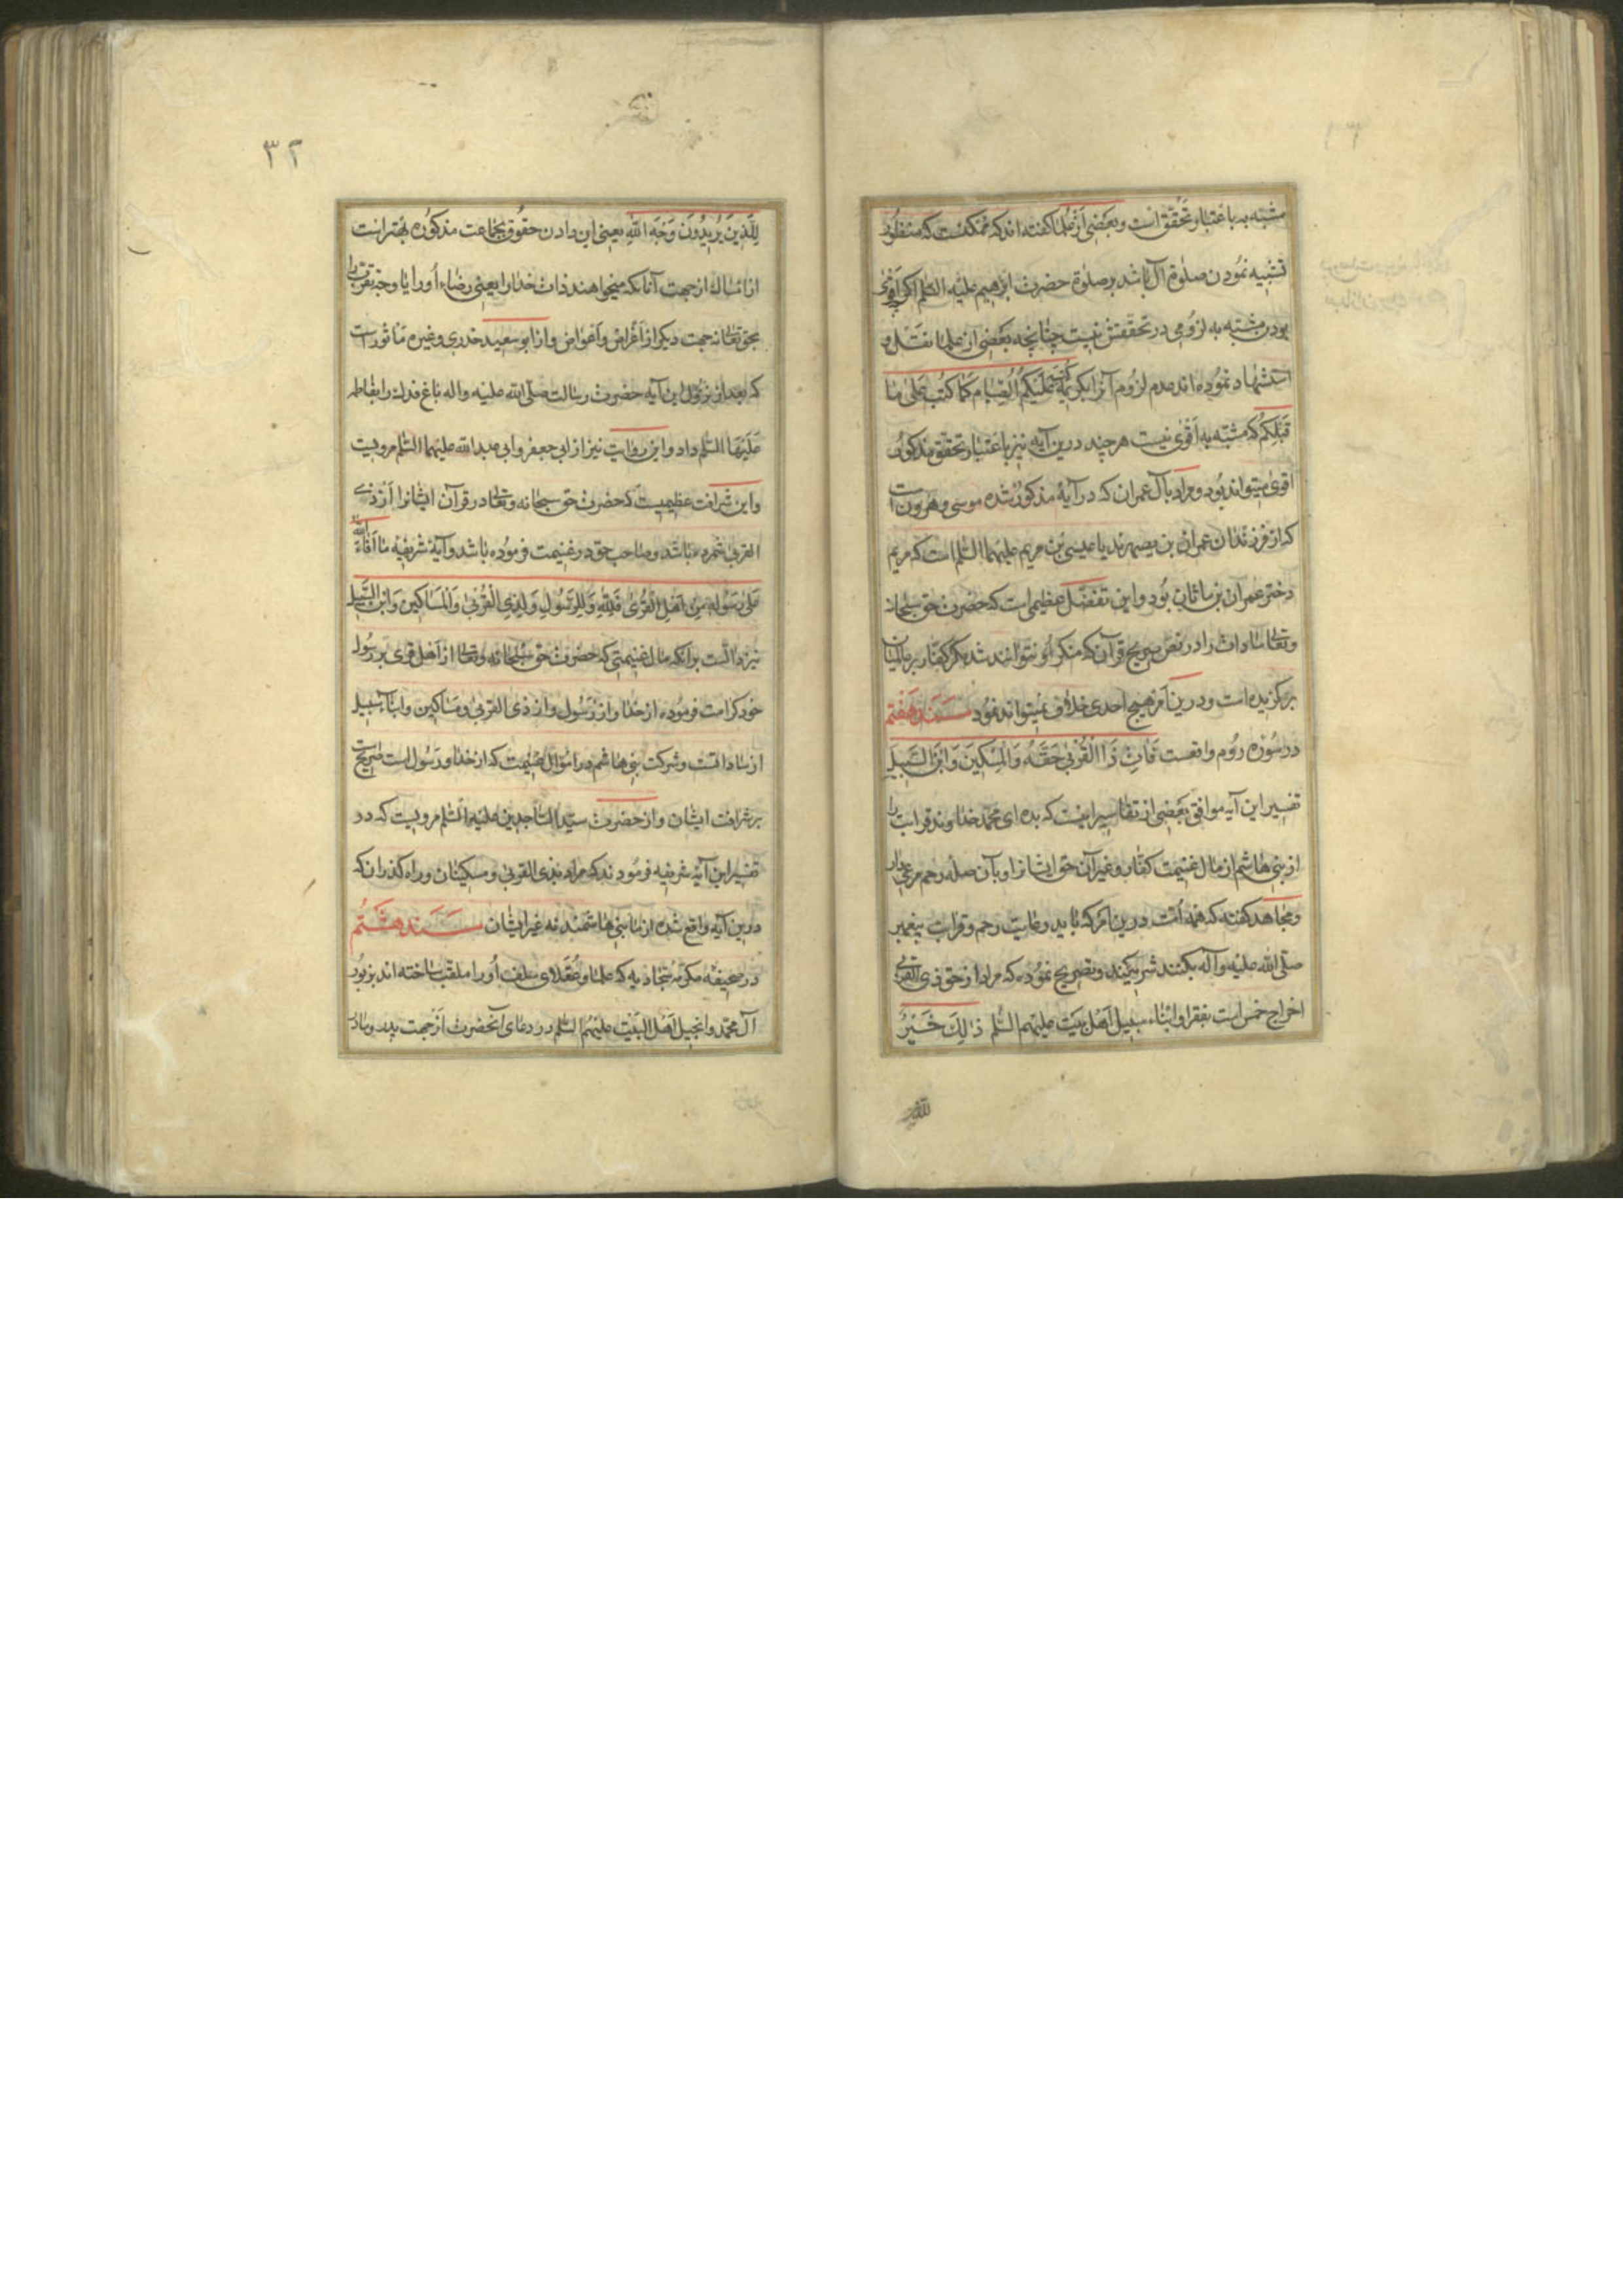 مشبّه به باعتبار تحقق است و بعضی از علما گفته‌اند که ممکنست که منظور
تشبیه نمودن صلوة آل باشد بر صلوة حضرت ابرهیم علیه السلم اگر اقوی
بودن مشبّه به لزومی در تحققش نیست چنانچه بعضی از علما نقل و
استشهاد نموده‌اند عدم لزوم آنرا بکریمه کتب علیکم الصّیام کما کتب علی ما
قبلکم که مشبّه به اقوی نیست هر چند درین آیه نیز باعتبار تحقق مذکور
اقوی میتواند بود و مراد بآل عمران که در آیهٔ مذکور شده موسی و هرون است
که از فرزندان عمران بن یصهرند یا عیسی بن مریم علیهما السّلم است که مریم
دختر عمران بن ماثان بود و این تفضّل عظیمی است که حضرت حق سبحانه
وتعالی سادات را در نصّ صریح قرآن که منکر او نتوانند شد مکر کفّار بر عالمیان
برگزیده است و درین امر هیچ احدی خلاف نمیتواند نمود سند هفتم
در سوره روم واقعست فَاٰتِ ذَا الْقُرْبیٰ حَقَّهُ وَالْمِسْکِینَ وَابْنَ السَّبِیلِ
تفسیر این آیه موافق بعضی از تفاسیر اینست که بده ای محمّد خداوند قرابت را
از بنی هاشم از مال غنیمت کفّار و غیر آن حق ایشانرا و بآن صله رحم مرعی دار
و مجاهد گفته که همه امّت درین امر که باید رعایت رحم و قرابت پیغمبر
صلّی الله علیه وآله بکنند شریکند و تصریح نموده که مراد از حق ذی القربی
اخراج خمس است بفقرا و ابناء سبیل اهل بیت علیهم السّلم ذٰلِکَ خَیْرٌ
للّذین
٣٢
لِلَّذِینَ یُرِیدُونَ وَجْهَ اللهِ یعنی این دادن حقوق بجماعت مذکوره بهتر است
از امساک از جهت آنانکه میخواهند ذات خدا را یعنی رضاء او را یا وجه تقرب
بحق تعالی نه جهت دیگر از اغراض و اعواض و از ابو سعید خدری و غیره ماثور است
که بعد از نزول این آیه حضرت رسالت صلّی الله علیه واله باغ فدک را بفاطمه
علیها السّلم داد و این روایت نیز از ابی جعفر و ابی عبد الله علیهما السّلم مرویست
و این شرافت عظیمیست که حضرت حق سبحانه وتعالی در قرآن ایشانرا از ذی
القربی شمرده باشد و صاحب حق در غنیمت فرموده باشد و آیهٔ شریفه ما افاء الله
عَلیٰ رَسُولِهِ مِنْ اَهْلِ الْقُریٰ فَلِلّهِ وَلِلرَّسُولِ وَلِذِی الْقُرْبیٰ وَالْمَسَاکِینِ وَابْنِ السَّبِیلِ
نیز دالّست بر آنکه مال غنیمتی که حضرت حق سبحانه وتعالی از اهل قری بر رسول
خود کرامت فرموده از خدا و از رسول و از ذی القربی و مساکین و ابناء سبیل
از ساداتست و شرکت بنی هاشم در اموال غنیمت که از خدا و رسول است صریحست
بر شرافت ایشان و از حضرت سیّد السّاجدین علیه السّلم مرویست که در
تفسیر این آیهٔ شریفه فرمودند که مراد بذی القربی و مسکینان و راه گذران که
درین آیه واقع شده از ما بنی هاشمند نه غیر ایشان سند هشتم
در صحیفه مکرّمه سجادیه که علما و عقلای سلف او را ملقب ساخته‌اند بزبور
آل محمّد و انجیل اهل البیت علیهم السّلم در دعای آنحضرت از جهت پدر و مادر